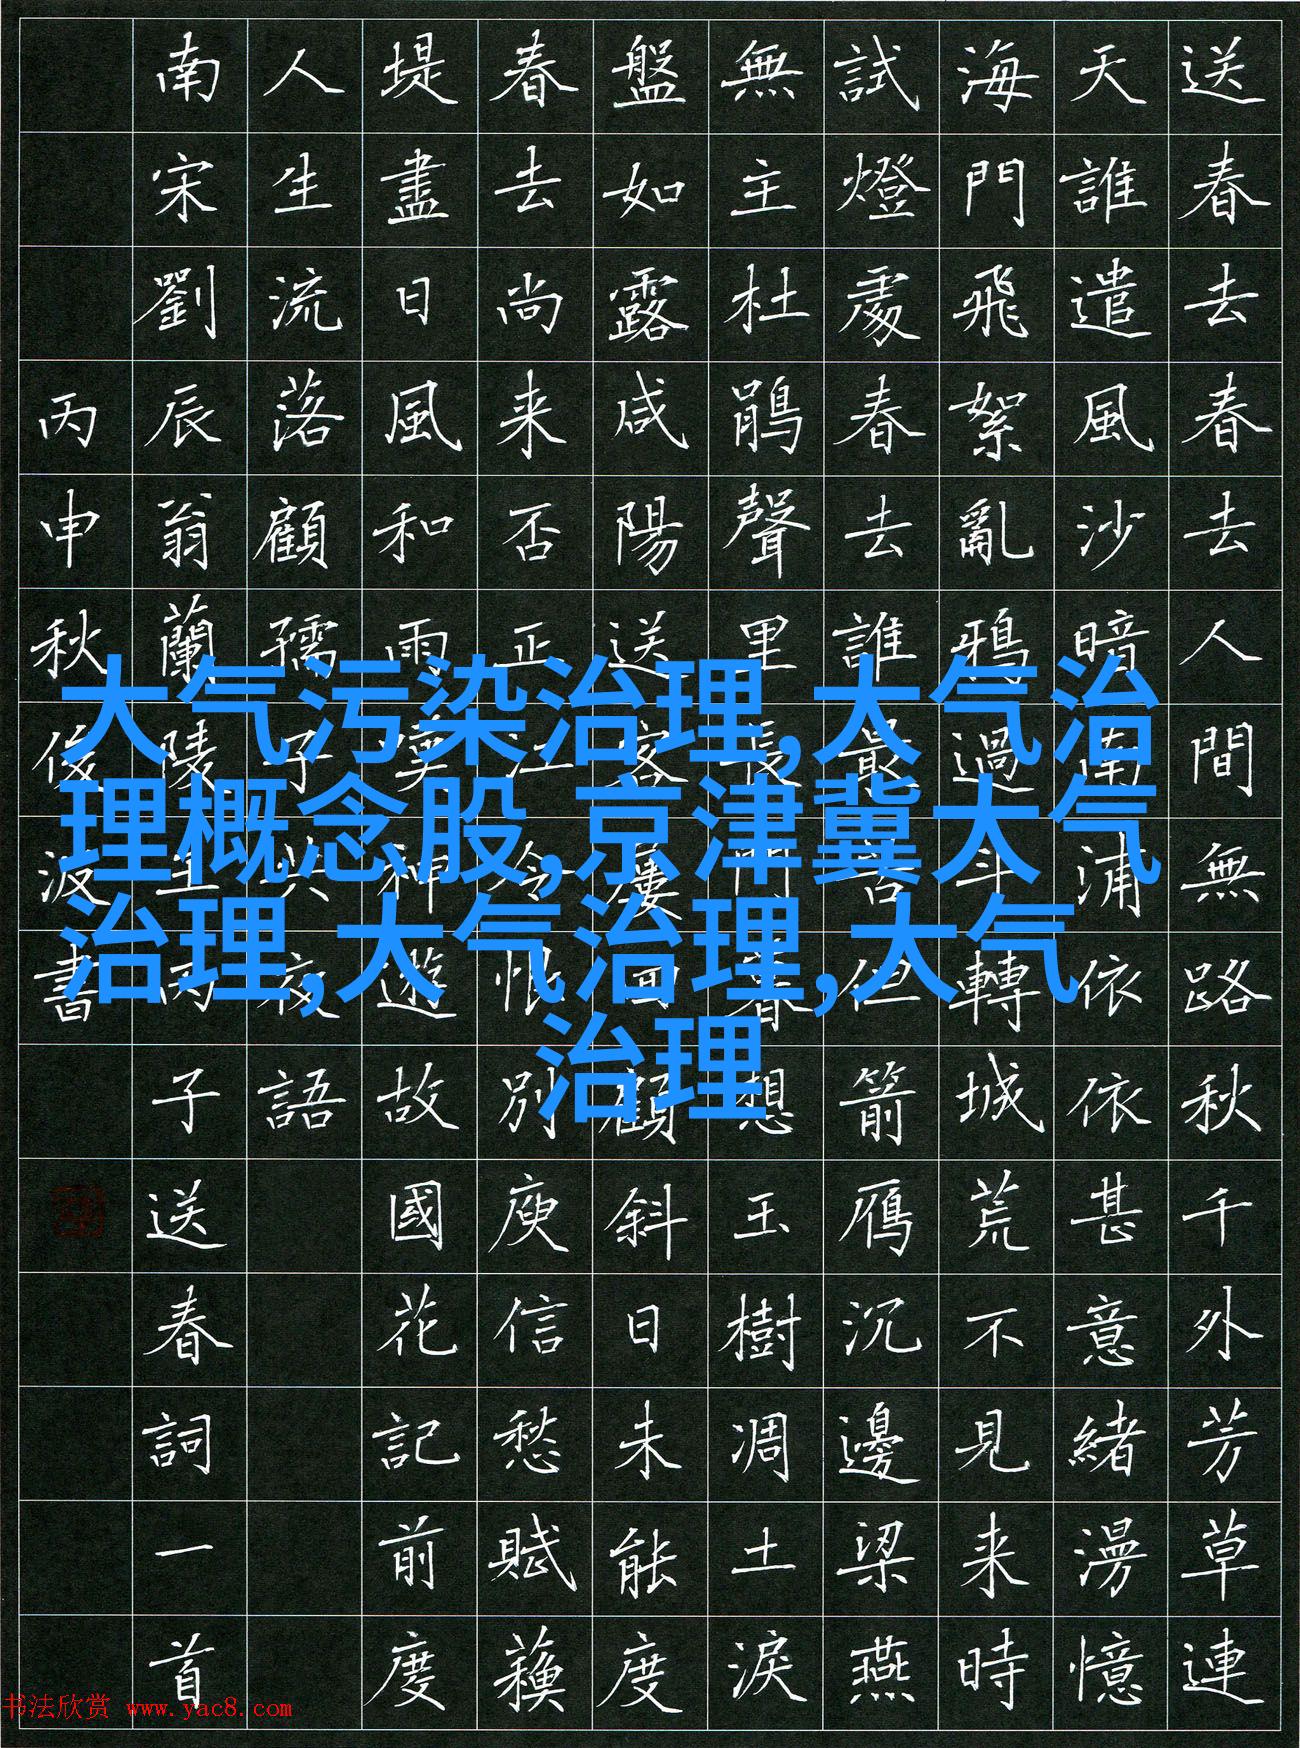 送春去春去人間無路秋千外芳草連
天誰遣風沙暗南浦依依甚意緒漫憶
海門飛絮亂鴉過斗轉城荒不見来時
試燈處春去誰最苦但箭雁沉邊梁燕
無主杜鵑聲里長門暮想玉樹凋土淚
盤如露咸陽送客屢回顧斜日未能度
春去尚来否正江令恨別庾信愁賦蘓
堤盡日風和雨嘆神遊故國花記前度
人生流落顧孺子共夜語
南宋劉辰翁蘭陵王丙子送春詞一首
丙申秋俊波書
大气污染治理,大气治
理概念股,京津冀大气
治理,大气治理,大气
治理
书法欣赏 www.yac8.com